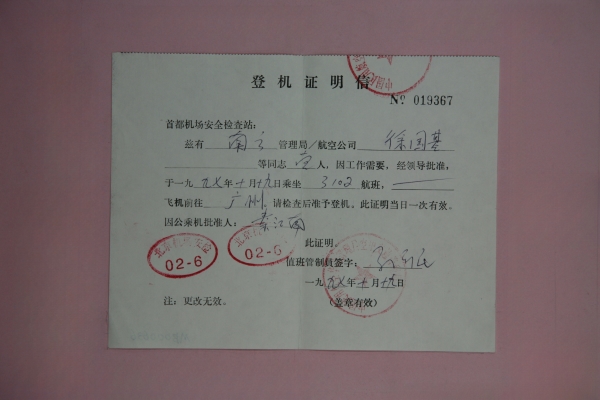 登机证明信
№ 019367
首都机场安全检查站：
兹有 南方 管理局/航空公司 徐国基
等同志 壹 人，因工作需要，经领导批准，
于一九 九七 年 十 月 十九 日乘坐 3102 航班，
飞机前往 广州，请检查后准予登机。此证明当日一次有效。
因公乘机批准人：
此证明。
值班管制员签字：
一九 九七 年 十 月 十九 日
注：更改无效。 （盖章有效）
02-6
02-6